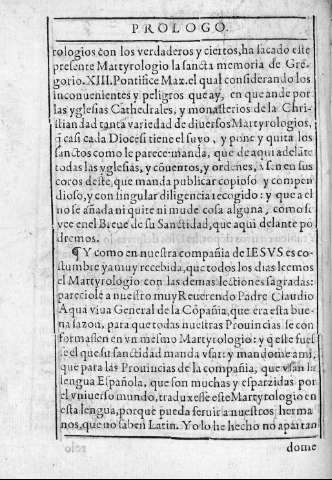 PROLOGO.
rologios con los verdaderos y ciertos, ha sacado este
presente Martyrologio la sancta memoria de Gre-
gorio. XIII. Pontifice Max. el qual considerando los
inconuenientes y peligros que ay, en que ande por
las yglesias Cathedrales, y monasterios de la Chri-
stiandad tanta variedad de diuersos Martyrologios,
q̃ casi cada Diocesi tiene el suyo, y pone y quita los
sanctos como le parece: manda, que de aqui adelãte
todas las yglesias, y cõuentos, y ordenes, vsen en sus
coros deste, que manda publicar copioso y compen
dioso, y con singular diligencia recogido: y que a el
no se añada ni quite ni mude cosa alguna, como se
vee en el Breue de su Sanctidad, que aqui delante põ
dremos.
¶ Y como en nuestra compañia de IESVS es co-
stumbre ya muy recebida, que todos los dias leemos
el Martyrologio con las demas lectiones sagradas:
pareciole a nuestro muy Reuerendo Padre Claudio
Aqua viua General de la Cõpañia, que era esta bue-
na sazon, para que todas nuestras Prouincias se con
formassen en vn mesmo Martyrologio: y q̃ este fues
se el que su sanctidad manda vsar: y mandome a mi,
que para las Prouincias de la compañia, que vsan la
lengua Española, que son muchas y esparzidas por
el vniuerso mundo, traduxesse este Martyrologio en
esta lengua, porque pueda seruir a nuestros herma
nos, que no saben Latin. Yo lo he hecho no apartan
dome